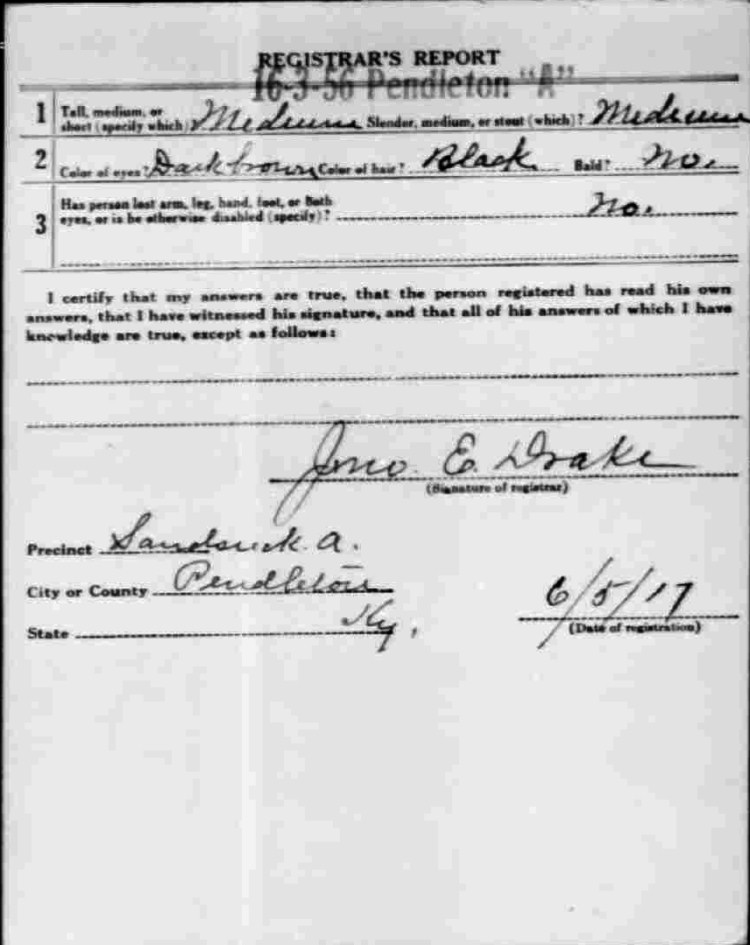 REGISTRAR'S REPORT
16-3-56 Pendleton "A"
1 Tall, medium, or short (specify which) Medium Slender, medium, or stout (which)? Medium
2 Color of eyes? Dark brown Color of hair? Black Bald? No.
3 Has person lost arm, leg, hand, foot, or both
eyes, or is he otherwise disabled (specify)? No.
I certify that my answers are true, that the person registered has read his own
answers, that I have witnessed his signature, and that all of his answers of which I have
knowledge are true, except as follows:
Jno. E. Drake
(Signature of registrar)
Precinct A.
City or County Pendleton
State Ky.
6/5/17
(Date of registration)